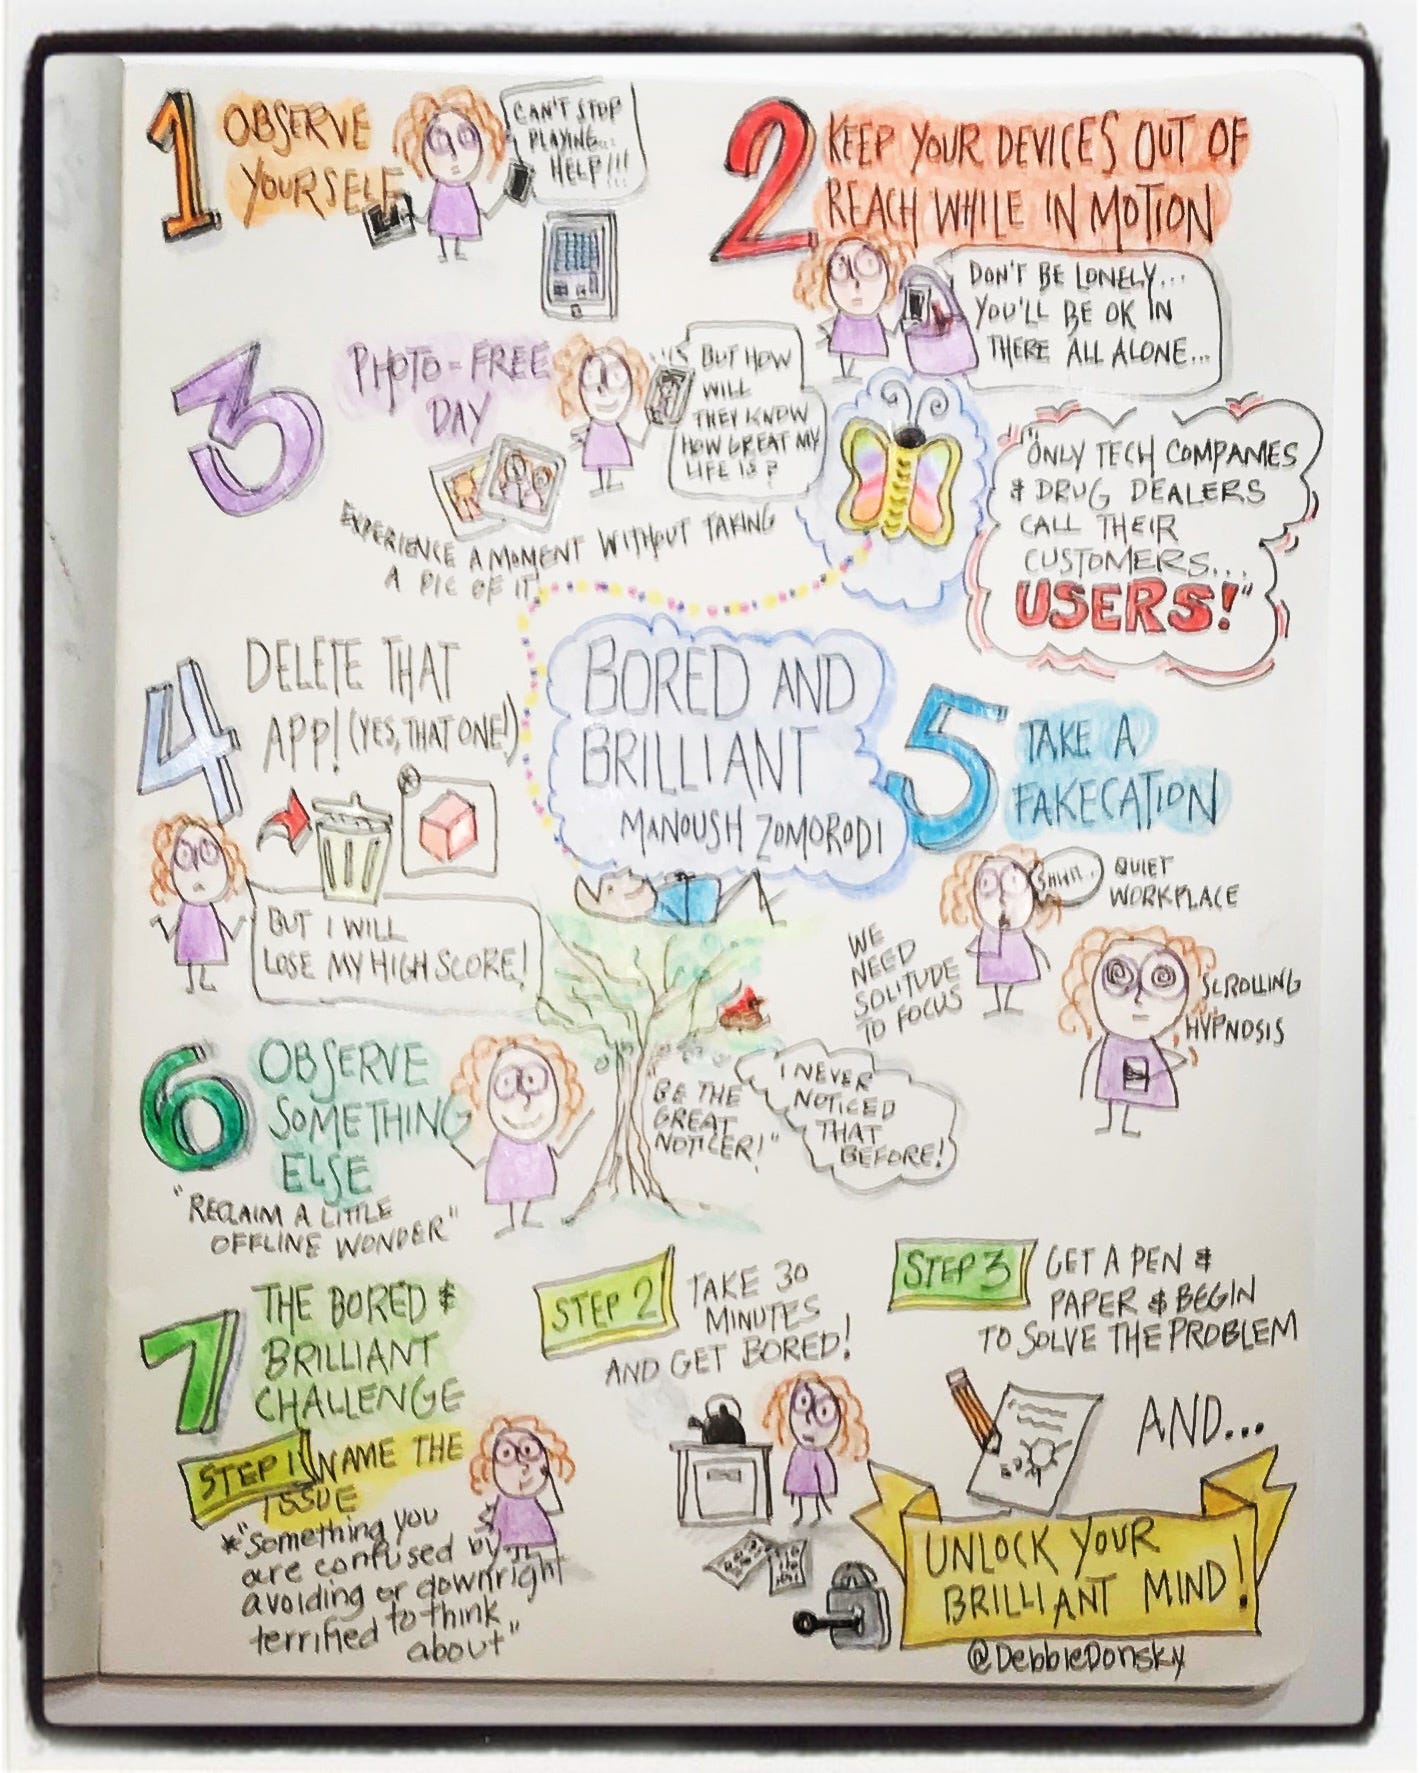 1
OBSERVE
YOURSELF
CAN'T STOP
PLAYING...
HELP!!!
2
KEEP YOUR DEVICES OUT OF
REACH WHILE IN MOTION
DON'T BE LONELY...
YOU'LL BE OK IN
THERE ALL ALONE...
3
PHOTO-FREE
DAY
BUT HOW
WILL
THEY KNOW
HOW GREAT MY
LIFE IS?
EXPERIENCE A MOMENT WITHOUT TAKING
A PIC OF IT!
"ONLY TECH COMPANIES
& DRUG DEALERS
CALL THEIR
CUSTOMERS...
USERS!"
4
DELETE THAT
APP! (YES, THAT ONE!)
BUT I WILL
LOSE MY HIGH SCORE!
BORED AND
BRILLIANT
MANOUSH ZOMORODI
5
TAKE A
FAKECATION
SHHH..
QUIET
WORKPLACE
WE
NEED
SOLITUDE
TO FOCUS
SCROLLING
HYPNOSIS
6
OBSERVE
SOMETHING
ELSE
"RECLAIM A LITTLE
OFFLINE WONDER"
"BE THE
GREAT
NOTICER!"
I NEVER
NOTICED
THAT
BEFORE!
7
THE BORED &
BRILLIANT
CHALLENGE
STEP 1 NAME THE
ISSUE
*"Something you
are confused by
avoiding or downright
terrified to think
about"
STEP 2 TAKE 30
MINUTES
AND GET BORED!
STEP 3 GET A PEN &
PAPER & BEGIN
TO SOLVE THE PROBLEM
AND...
UNLOCK YOUR
BRILLIANT MIND!
@DebbieDonsky